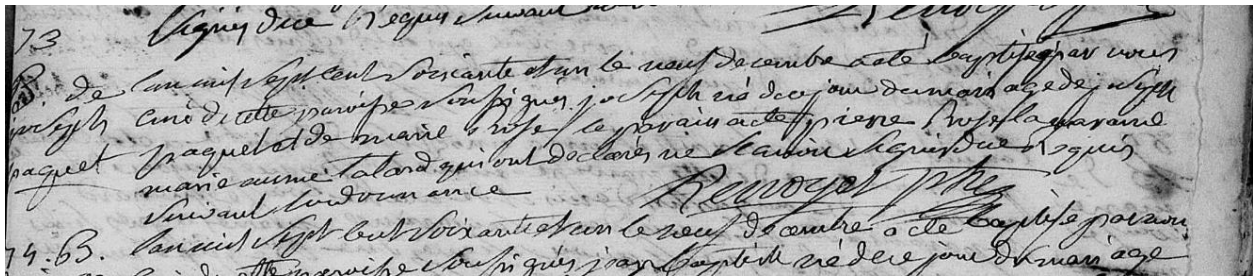 73 signés de ce requis suivant
Bat. de lan mil sept cent soixante et un le neuf decembre a été baptisé par nous
joseph curé de cette paroisse soussignés joseph né de ce jour du mariage de joseph
paquet paquet et de marie rose le parain a été pierre rose la maraine
marie anne talard qui ont declarés ne scavoir signer de ce requis
suivant lordonnance Renoyer ptre
74. B. lan mil sept cent soixante et un le neuf decembre a été baptisé par nous
curé de cette paroisse soussignés jean baptiste né de ce jour du mariage